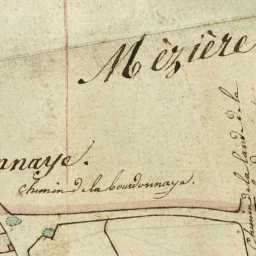 Mézière
nnaye.
chemin de la bourdonnaye.
chemin de la land de la